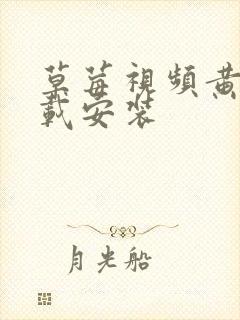 草莓視頻黃
載安裝
月光船